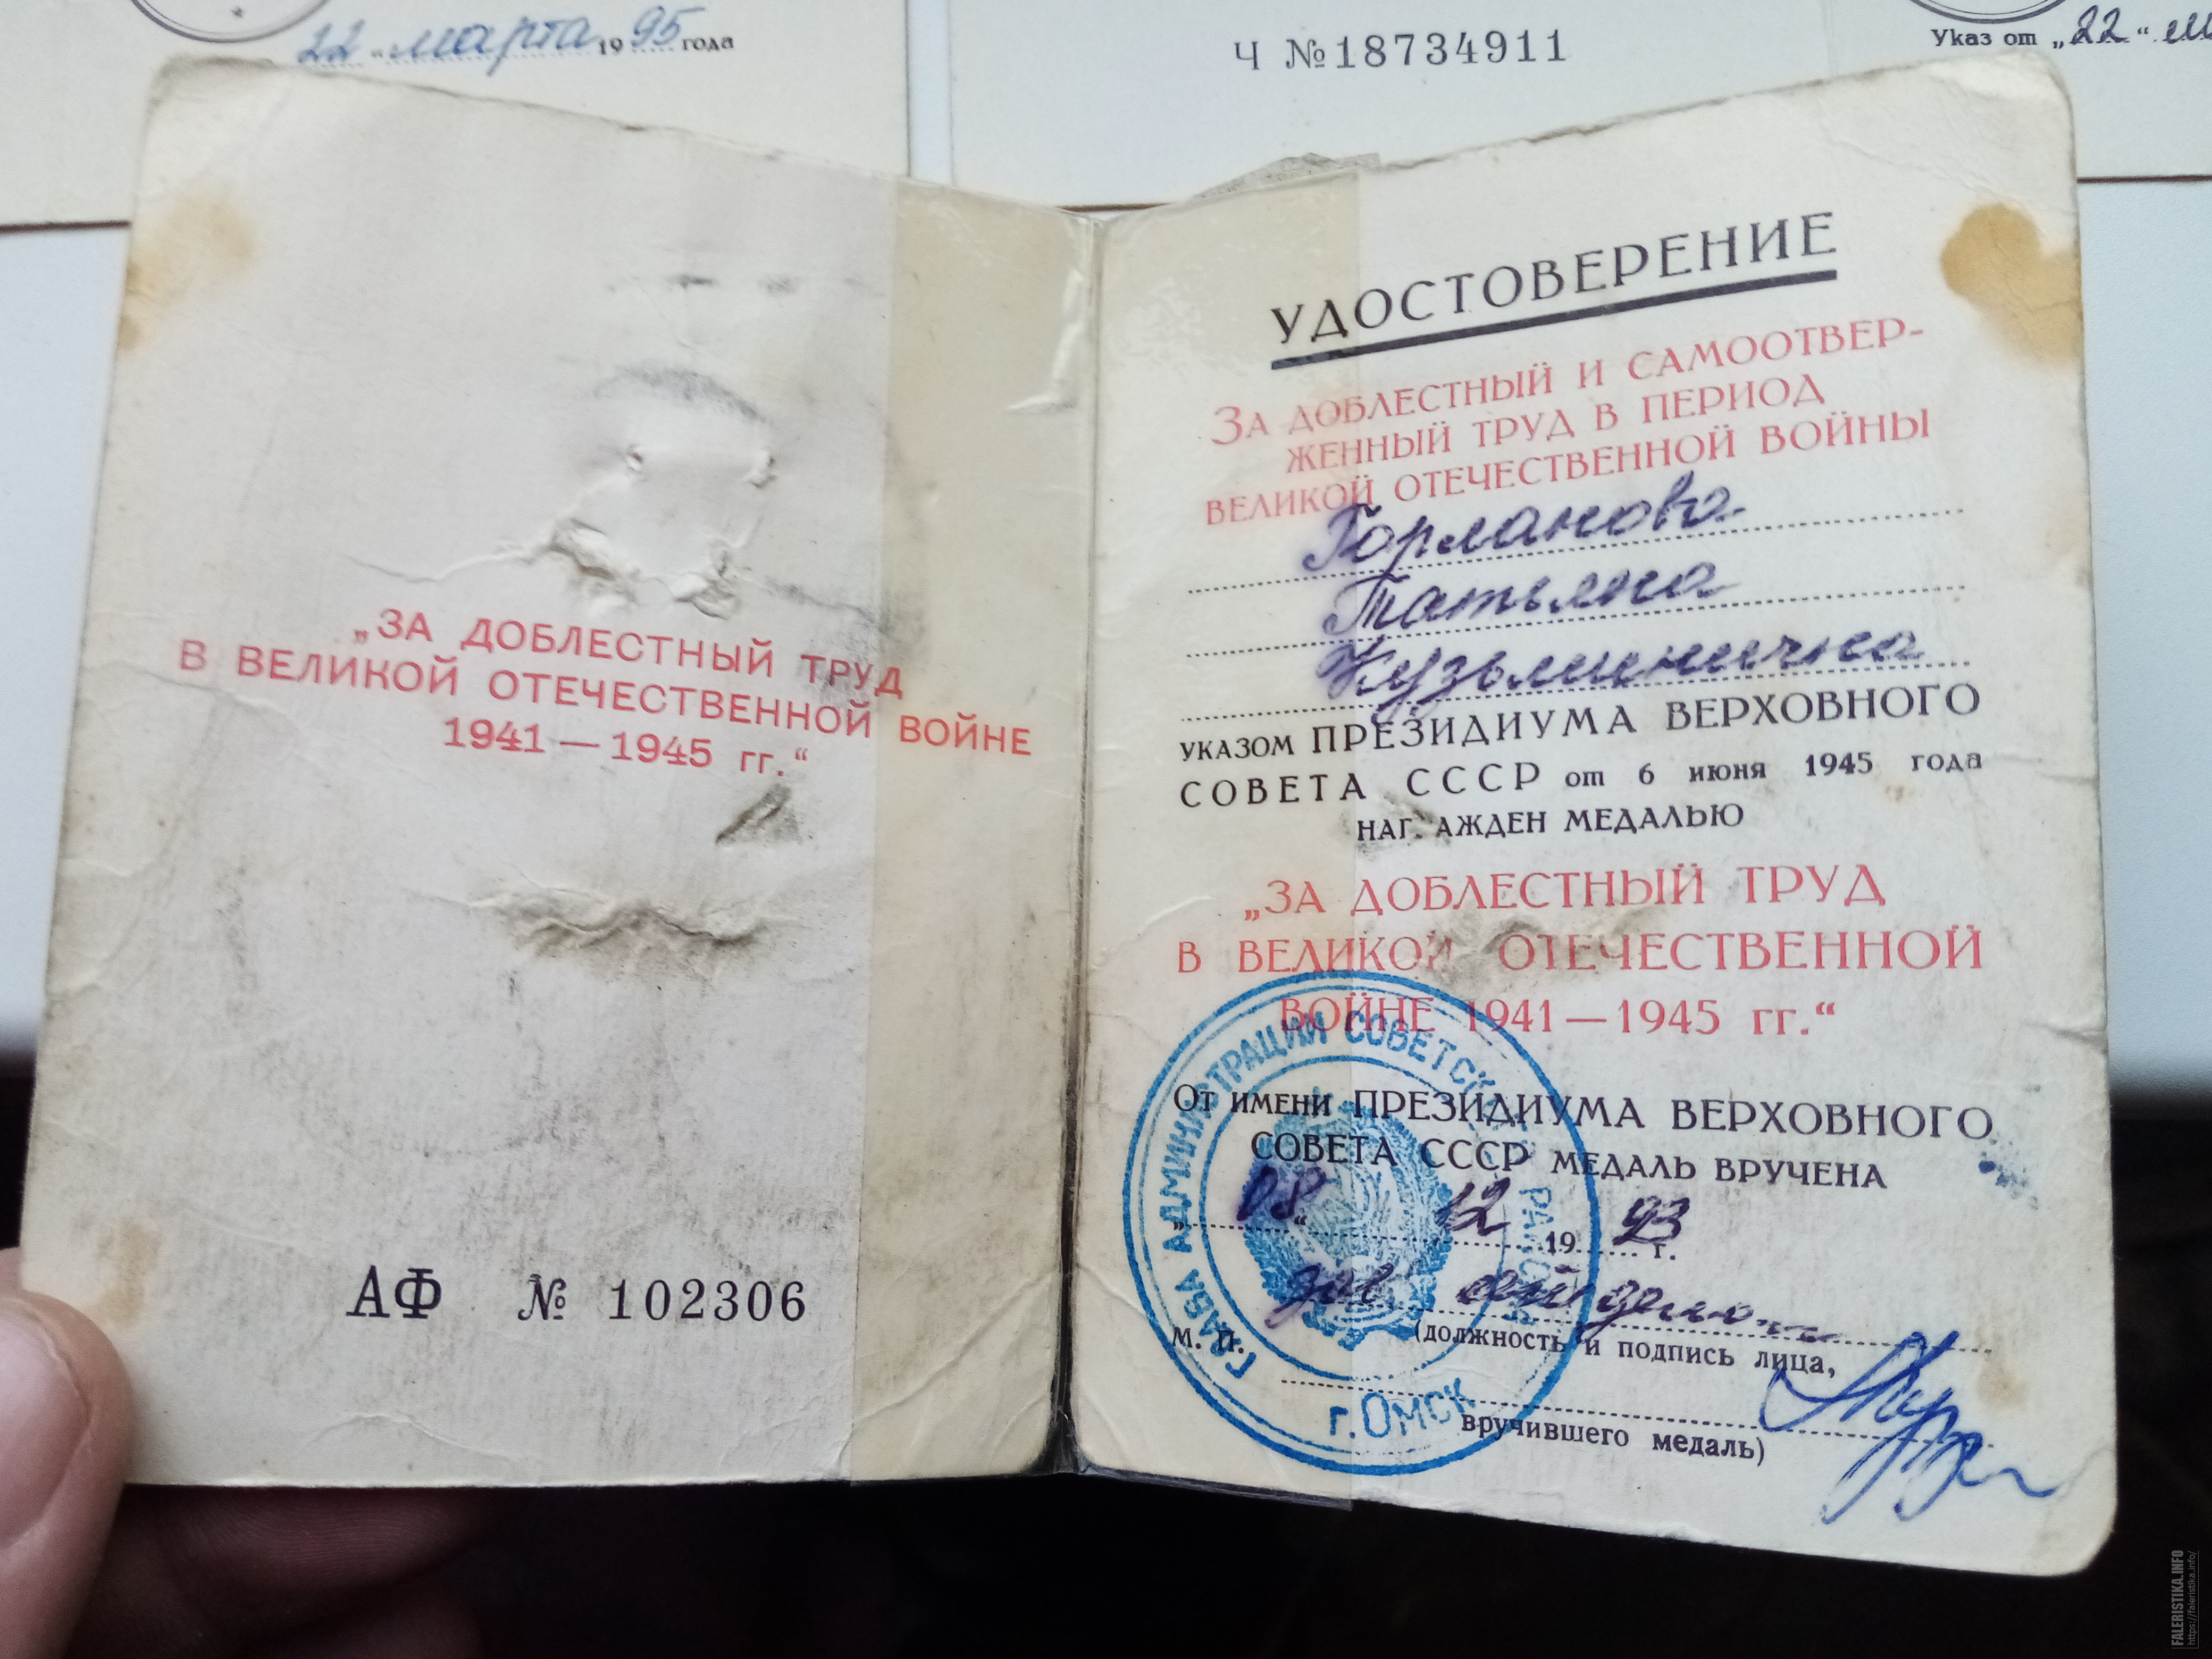 22 „ марта 1995 года
Ч №18734911
Указ от „22“
„ЗА ДОБЛЕСТНЫЙ ТРУД
В ВЕЛИКОЙ ОТЕЧЕСТВЕННОЙ ВОЙНЕ
1941—1945 гг.“
АФ № 102306
УДОСТОВЕРЕНИЕ
ЗА ДОБЛЕСТНЫЙ И САМООТВЕР-
ЖЕННЫЙ ТРУД В ПЕРИОД
ВЕЛИКОЙ ОТЕЧЕСТВЕННОЙ ВОЙНЫ
Горланова
Татьяна
Кузьминична
УКАЗОМ ПРЕЗИДИУМА ВЕРХОВНОГО
СОВЕТА СССР от 6 июня 1945 года
НАГ АЖДЕН МЕДАЛЬЮ
„ЗА ДОБЛЕСТНЫЙ ТРУД
В ВЕЛИКОЙ ОТЕЧЕСТВЕННОЙ
ВОЙНЕ 1941—1945 гг.“
От ИМЕНИ ПРЕЗИДИУМА ВЕРХОВНОГО
СОВЕТА СССР МЕДАЛЬ ВРУЧЕНА
„08“ 12 1993 г.
зав
М. П. (должность и подпись лица,
вручившего медаль)
ГЛАВА АДМИНИСТРАЦИИ СОВЕТСК РАЙО
г. ОМСК
FALERISTIKA.INFO
https://faleristika.info/